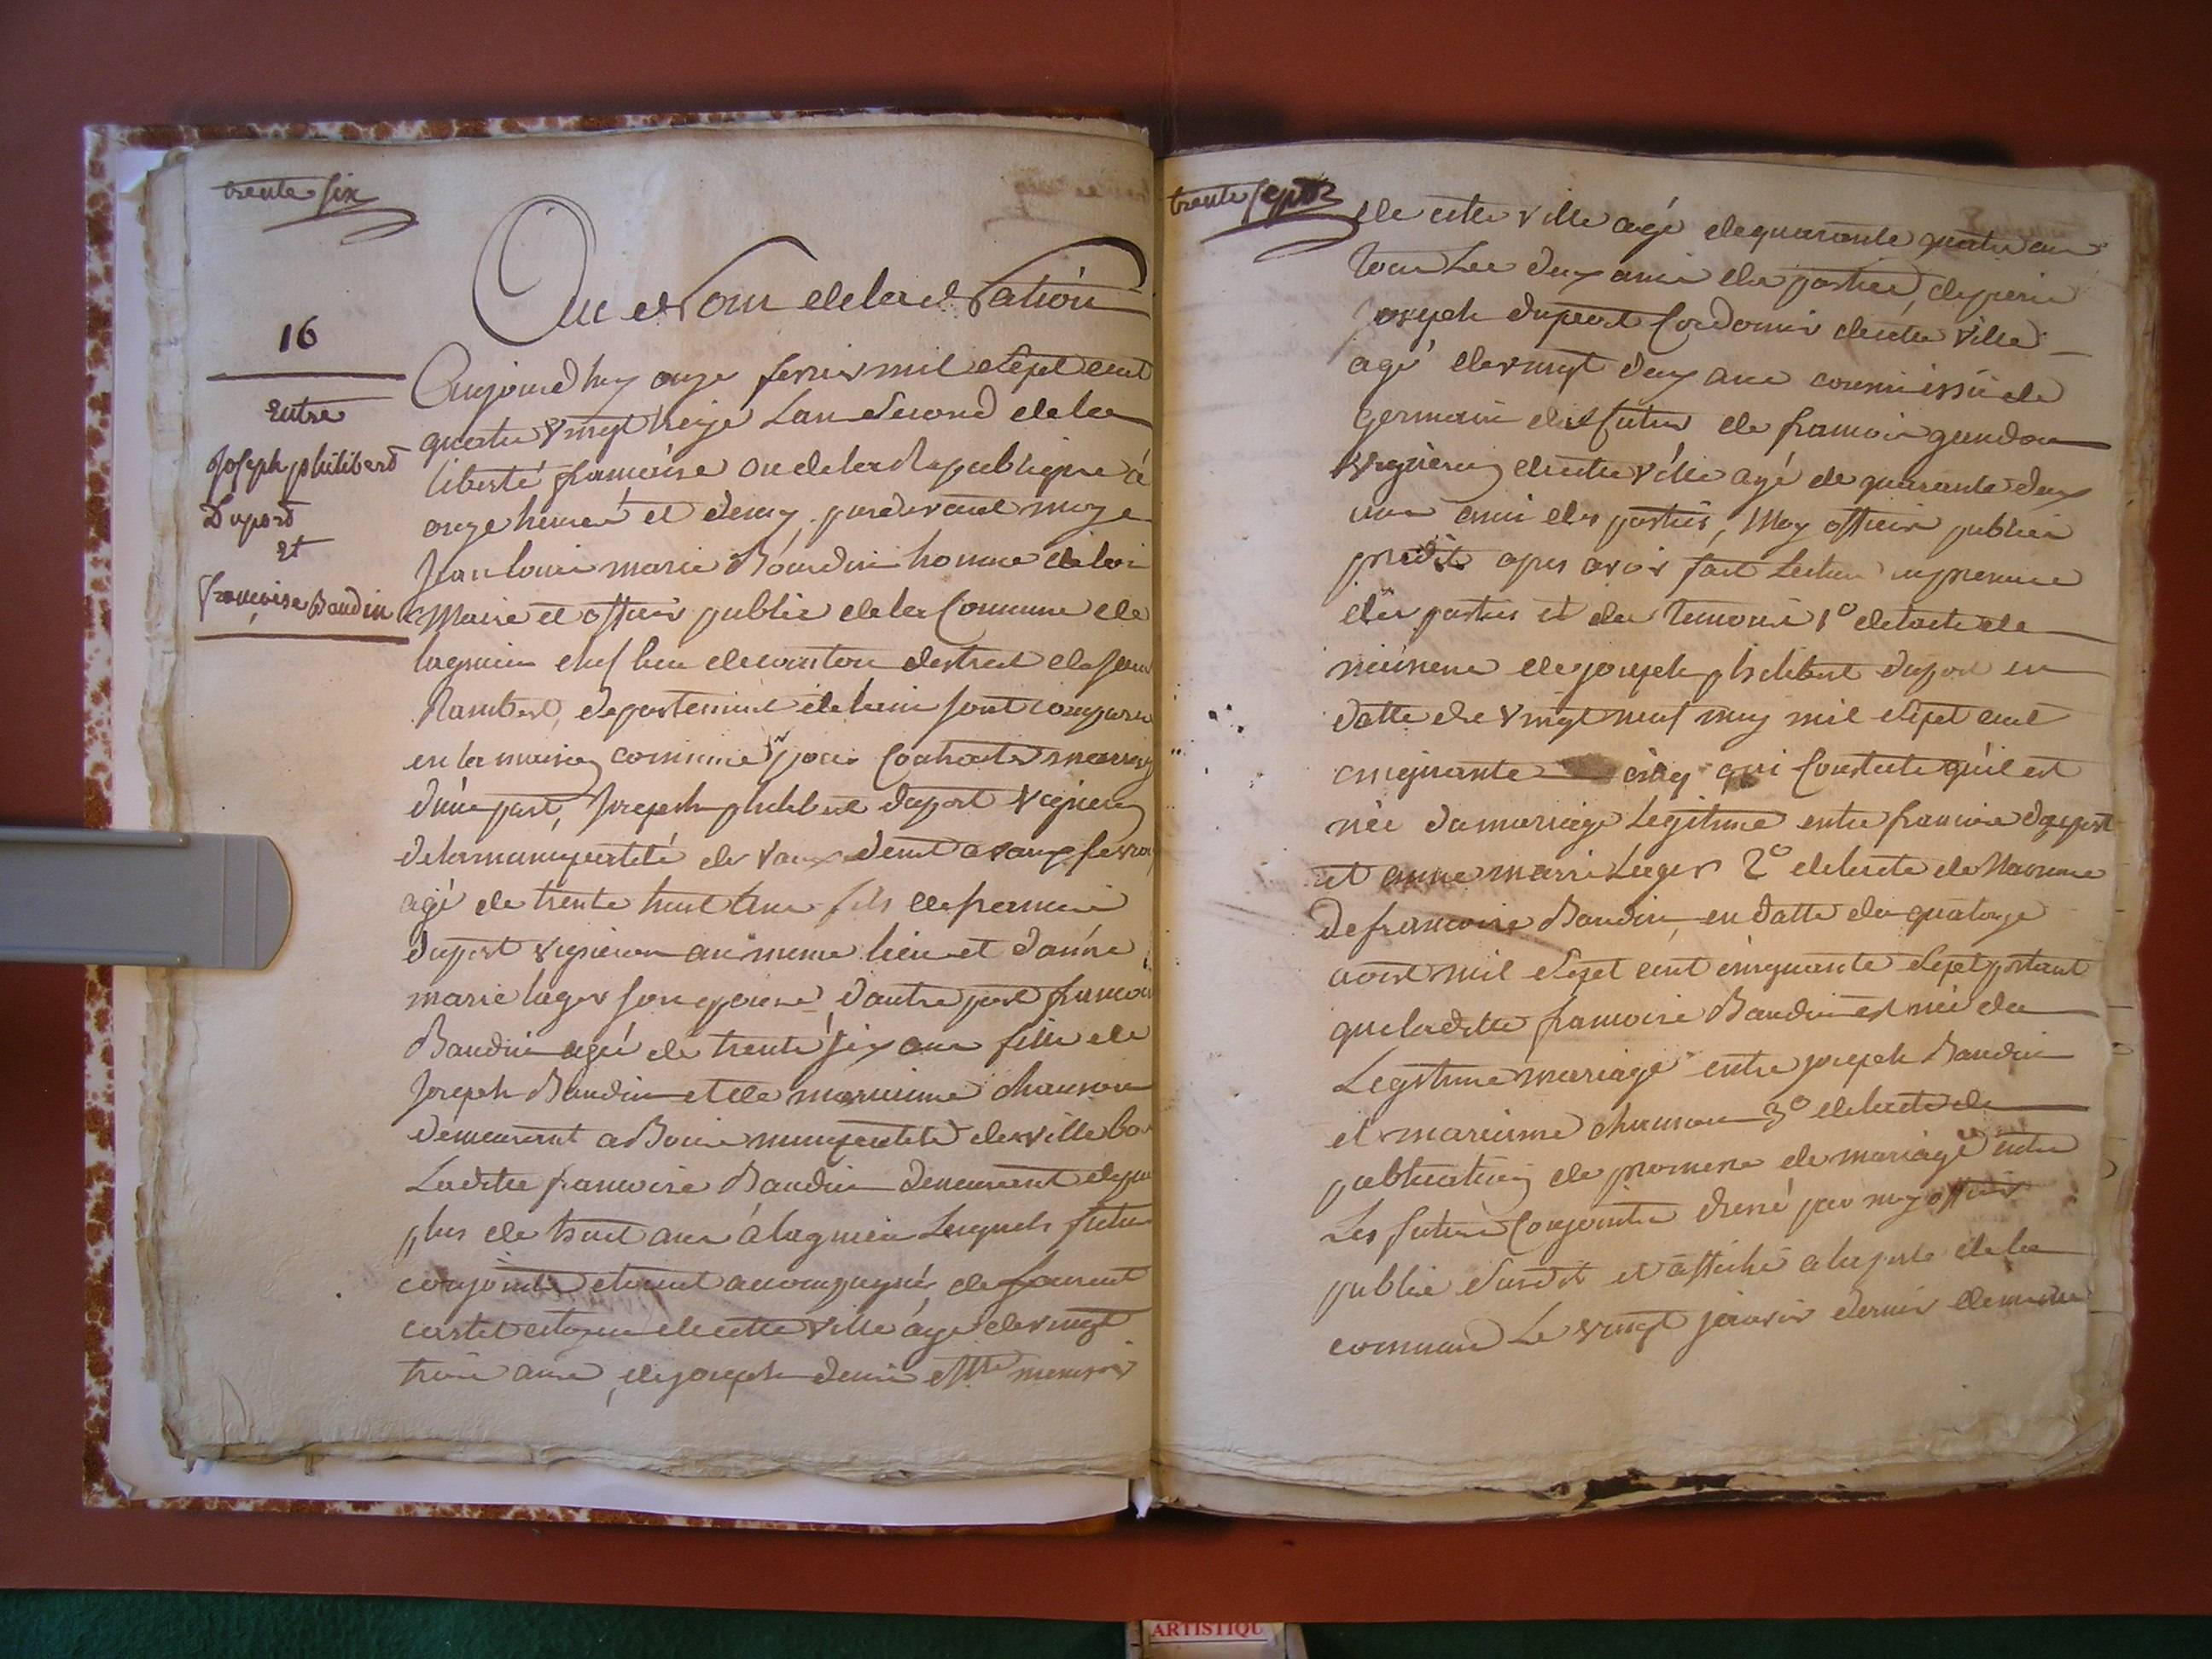 trente six
Au Nom de la Nation
16
Entre
Joseph philibert
Duport
Et
françoise Baudin
Aujourdhuy onze fevrier mil sept cent
quatre vingt treize Lan second de la
liberté francoise ou de la Republique à
onze heures et demy pardevant moy
Jean louis marie Bourdin homme de loi
Maire et officier public de la Commune de
lagnieu chef lieu de canton destrict de Saint
Rambert, departement de lain sont comparu
en la maison commune pour Contracter mariage
d'une part, Joseph philibert duport vigneron
de la municipalité de vaux demt a vaux fevroy
agé de trente huit ans fils de francois
duport vigneron au meme lieu et d'anne
marie leger son epouse, d'autre part francoise
Baudin agée de trente six ans fille de
Joseph Baudin et de marianne chanson
demeurant a municipalité de villebois
Ladite francoise Baudin demeurant depuis
plus de huit ans à lagnieu Lesquels futurs
conjoints etoient accompagnés de Laurent
citoyen de cette ville agé de vingt
trois ans, de joseph denis menuisier
trente sept
de cette ville agé de quarante quatre ans
tous Les deux amis des parties, de pierre
joseph duport Cordonnier de cette ville
agé de vingt deux ans cousin issu de
germain du futur de francois gandon
vigneron de cette ville agé de quarante deux
ans ami des parties, Moy officier public
predit apres avoir fait Lecture en presence
des parties et des temoins 1° de lacte de
naissance de joseph philibert duport en
datte du vingt neuf may mil sept cent
cinquante cinq qui Constate qu'il est
née du mariage Legitime entre francois duport
et anne marie Leger 2° de lacte de Naissance
de francoise Baudin, en datte du quatorze
aoust mil sept cent cinquante sept portant
que ladite francoise Baudin est née du
Legitime mariage entre joseph Baudin
et marianne chanson 3° de lacte de
publication de promesse de mariage entre
Les futurs Conjoints dressé par moy officier
public susdit et affiché a la porte de la
commune Le vingt janvier dernier
ARTISTIQU